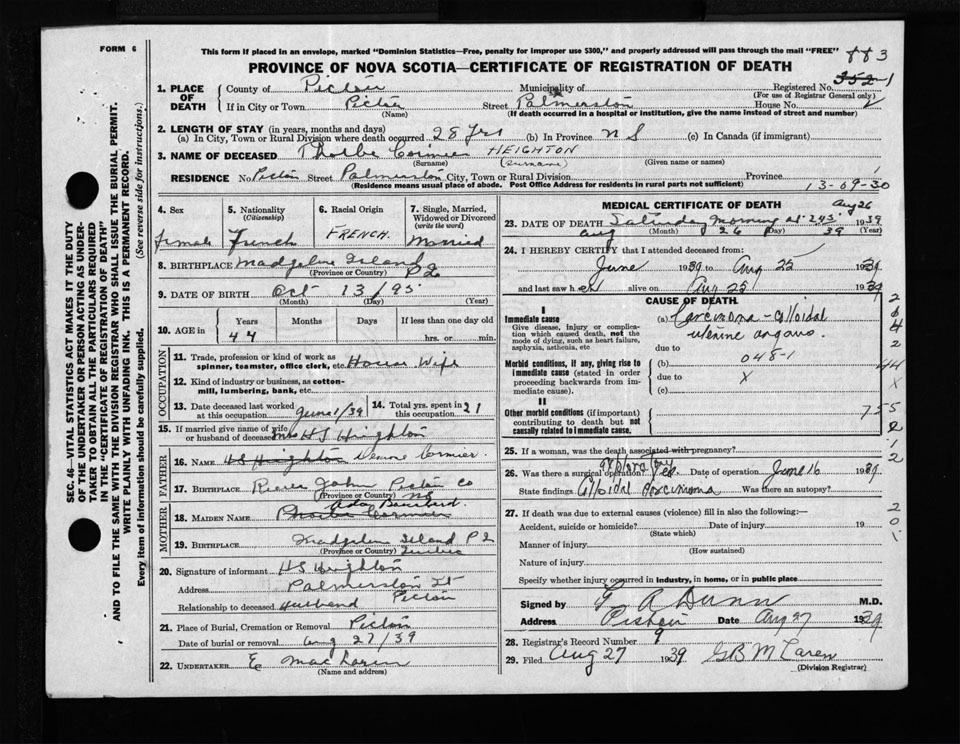 FORM 6
This form if placed in an envelope, marked "Dominion Statistics—Free, penalty for improper use $300," and properly addressed will pass through the mail "FREE"
PROVINCE OF NOVA SCOTIA—CERTIFICATE OF REGISTRATION OF DEATH
883
1. PLACE OF DEATH
County of Pictou Municipality of Registered No. 352-1
(For use of Registrar General only)
If in City or Town Pictou Street Palmerston House No.
(Name) (If death occurred in a hospital or institution, give the name instead of street and number)
2. LENGTH OF STAY (in years, months and days)
(a) In City, Town or Rural Division where death occurred 28 Yrs (b) In Province N S (c) In Canada (if immigrant)
3. NAME OF DECEASED Phoebe HEIGHTON
(Surname) (Surname) (Given name or names)
RESIDENCE No. Pictou Street Palmerston City, Town or Rural Division Province
(Residence means usual place of abode. Post Office Address for residents in rural parts not sufficient)
13-09-30
4. Sex Female
5. Nationality (Citizenship) French
6. Racial Origin FRENCH.
7. Single, Married, Widowed or Divorced (write the word) Married
8. BIRTHPLACE Madgeline Island P Q
(Province or Country)
9. DATE OF BIRTH Oct 13/95
(Month) (Day) (Year)
10. AGE in Years Months Days If less than one day old
44 hrs. or min.
OCCUPATION
11. Trade, profession or kind of work as spinner, teamster, office clerk, etc. House Wife
12. Kind of industry or business, as cotton-mill, lumbering, bank, etc.
13. Date deceased last worked at this occupation June 1/39
14. Total yrs. spent in this occupation 21
15. If married give name of wife or husband of deceased Mrs H S Heighton
FATHER
16. NAME H S Heighton Cormier.
17. BIRTHPLACE River John Pictou Co NS
(Province or Country)
MOTHER
18. MAIDEN NAME Phoebe Cormier Ada
19. BIRTHPLACE Madgelin Island P Q
(Province or Country) Quebec
20. Signature of informant H S Heighton
Address Palmerston St Pictou
Relationship to deceased Husband
21. Place of Burial, Cremation or Removal Pictou
Date of burial or removal Aug 27/39
22. UNDERTAKER E MacLaren
(Name and address)
MEDICAL CERTIFICATE OF DEATH
Aug 26
23. DATE OF DEATH Saturday Morning at 245 1939
Aug (Month) 26 (Day) 39 (Year)
24. I HEREBY CERTIFY that I attended deceased from:
June 1939 to Aug 25 1939
and last saw her alive on Aug 25 1939
CAUSE OF DEATH
I
Immediate cause
Give disease, injury or complication which caused death, not the mode of dying, such as heart failure, asphyxia, asthenia, etc
(a) Carcinoma - Colloidal
due to
Morbid conditions, if any, giving rise to immediate cause (stated in order proceeding backwards from immediate cause).
(b) 048-1
due to X
(c)
II
Other morbid conditions (if important) contributing to death but not causally related to immediate cause.
25. If a woman, was the death associated with pregnancy?
26. Was there a surgical operation? Exploratory Yes Date of operation June 16 1939
State findings Colloidal Carcinoma Was there an autopsy?
27. If death was due to external causes (violence) fill in also the following:—
Accident, suicide or homicide? Date of injury 19
(State which)
Manner of injury
(How sustained)
Nature of injury
Specify whether injury occurred in industry, in home, or in public place
Signed by G A Dunn M.D.
Address Pictou Date Aug 27 1939
28. Registrar's Record Number 9
29. Filed Aug 27 1939 G B McLaren
(Division Registrar)
SEC. 46—VITAL STATISTICS ACT MAKES IT THE DUTY OF THE UNDERTAKER OR PERSON ACTING AS UNDERTAKER TO OBTAIN ALL THE PARTICULARS REQUIRED IN THE "CERTIFICATE OF REGISTRATION OF DEATH"
AND TO FILE THE SAME WITH THE DIVISION REGISTRAR WHO SHALL ISSUE THE BURIAL PERMIT.
WRITE PLAINLY WITH UNFADING INK. THIS IS A PERMANENT RECORD.
Every item of information should be carefully supplied. (See reverse side for instructions.)